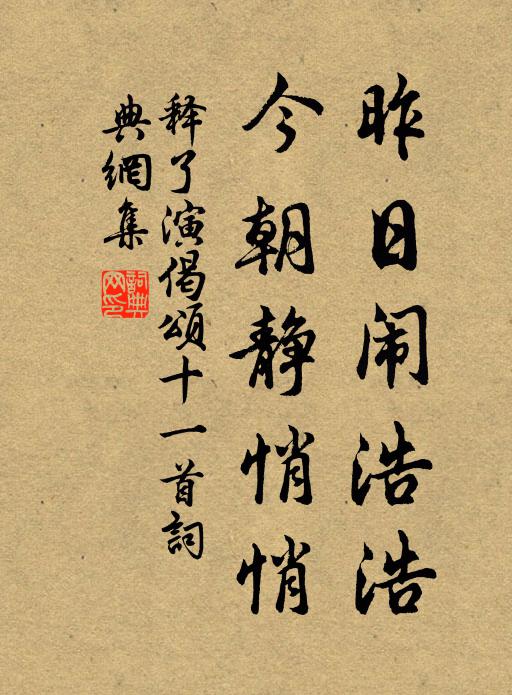 昨日闹浩浩
今朝静悄悄
释了演偈颂十一首詞
典網集
詞典网印